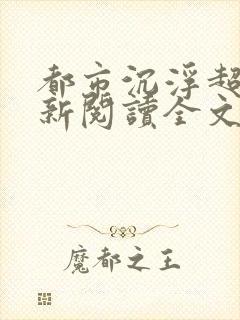 都市沉浮超
新閱讀全文
魔都之王